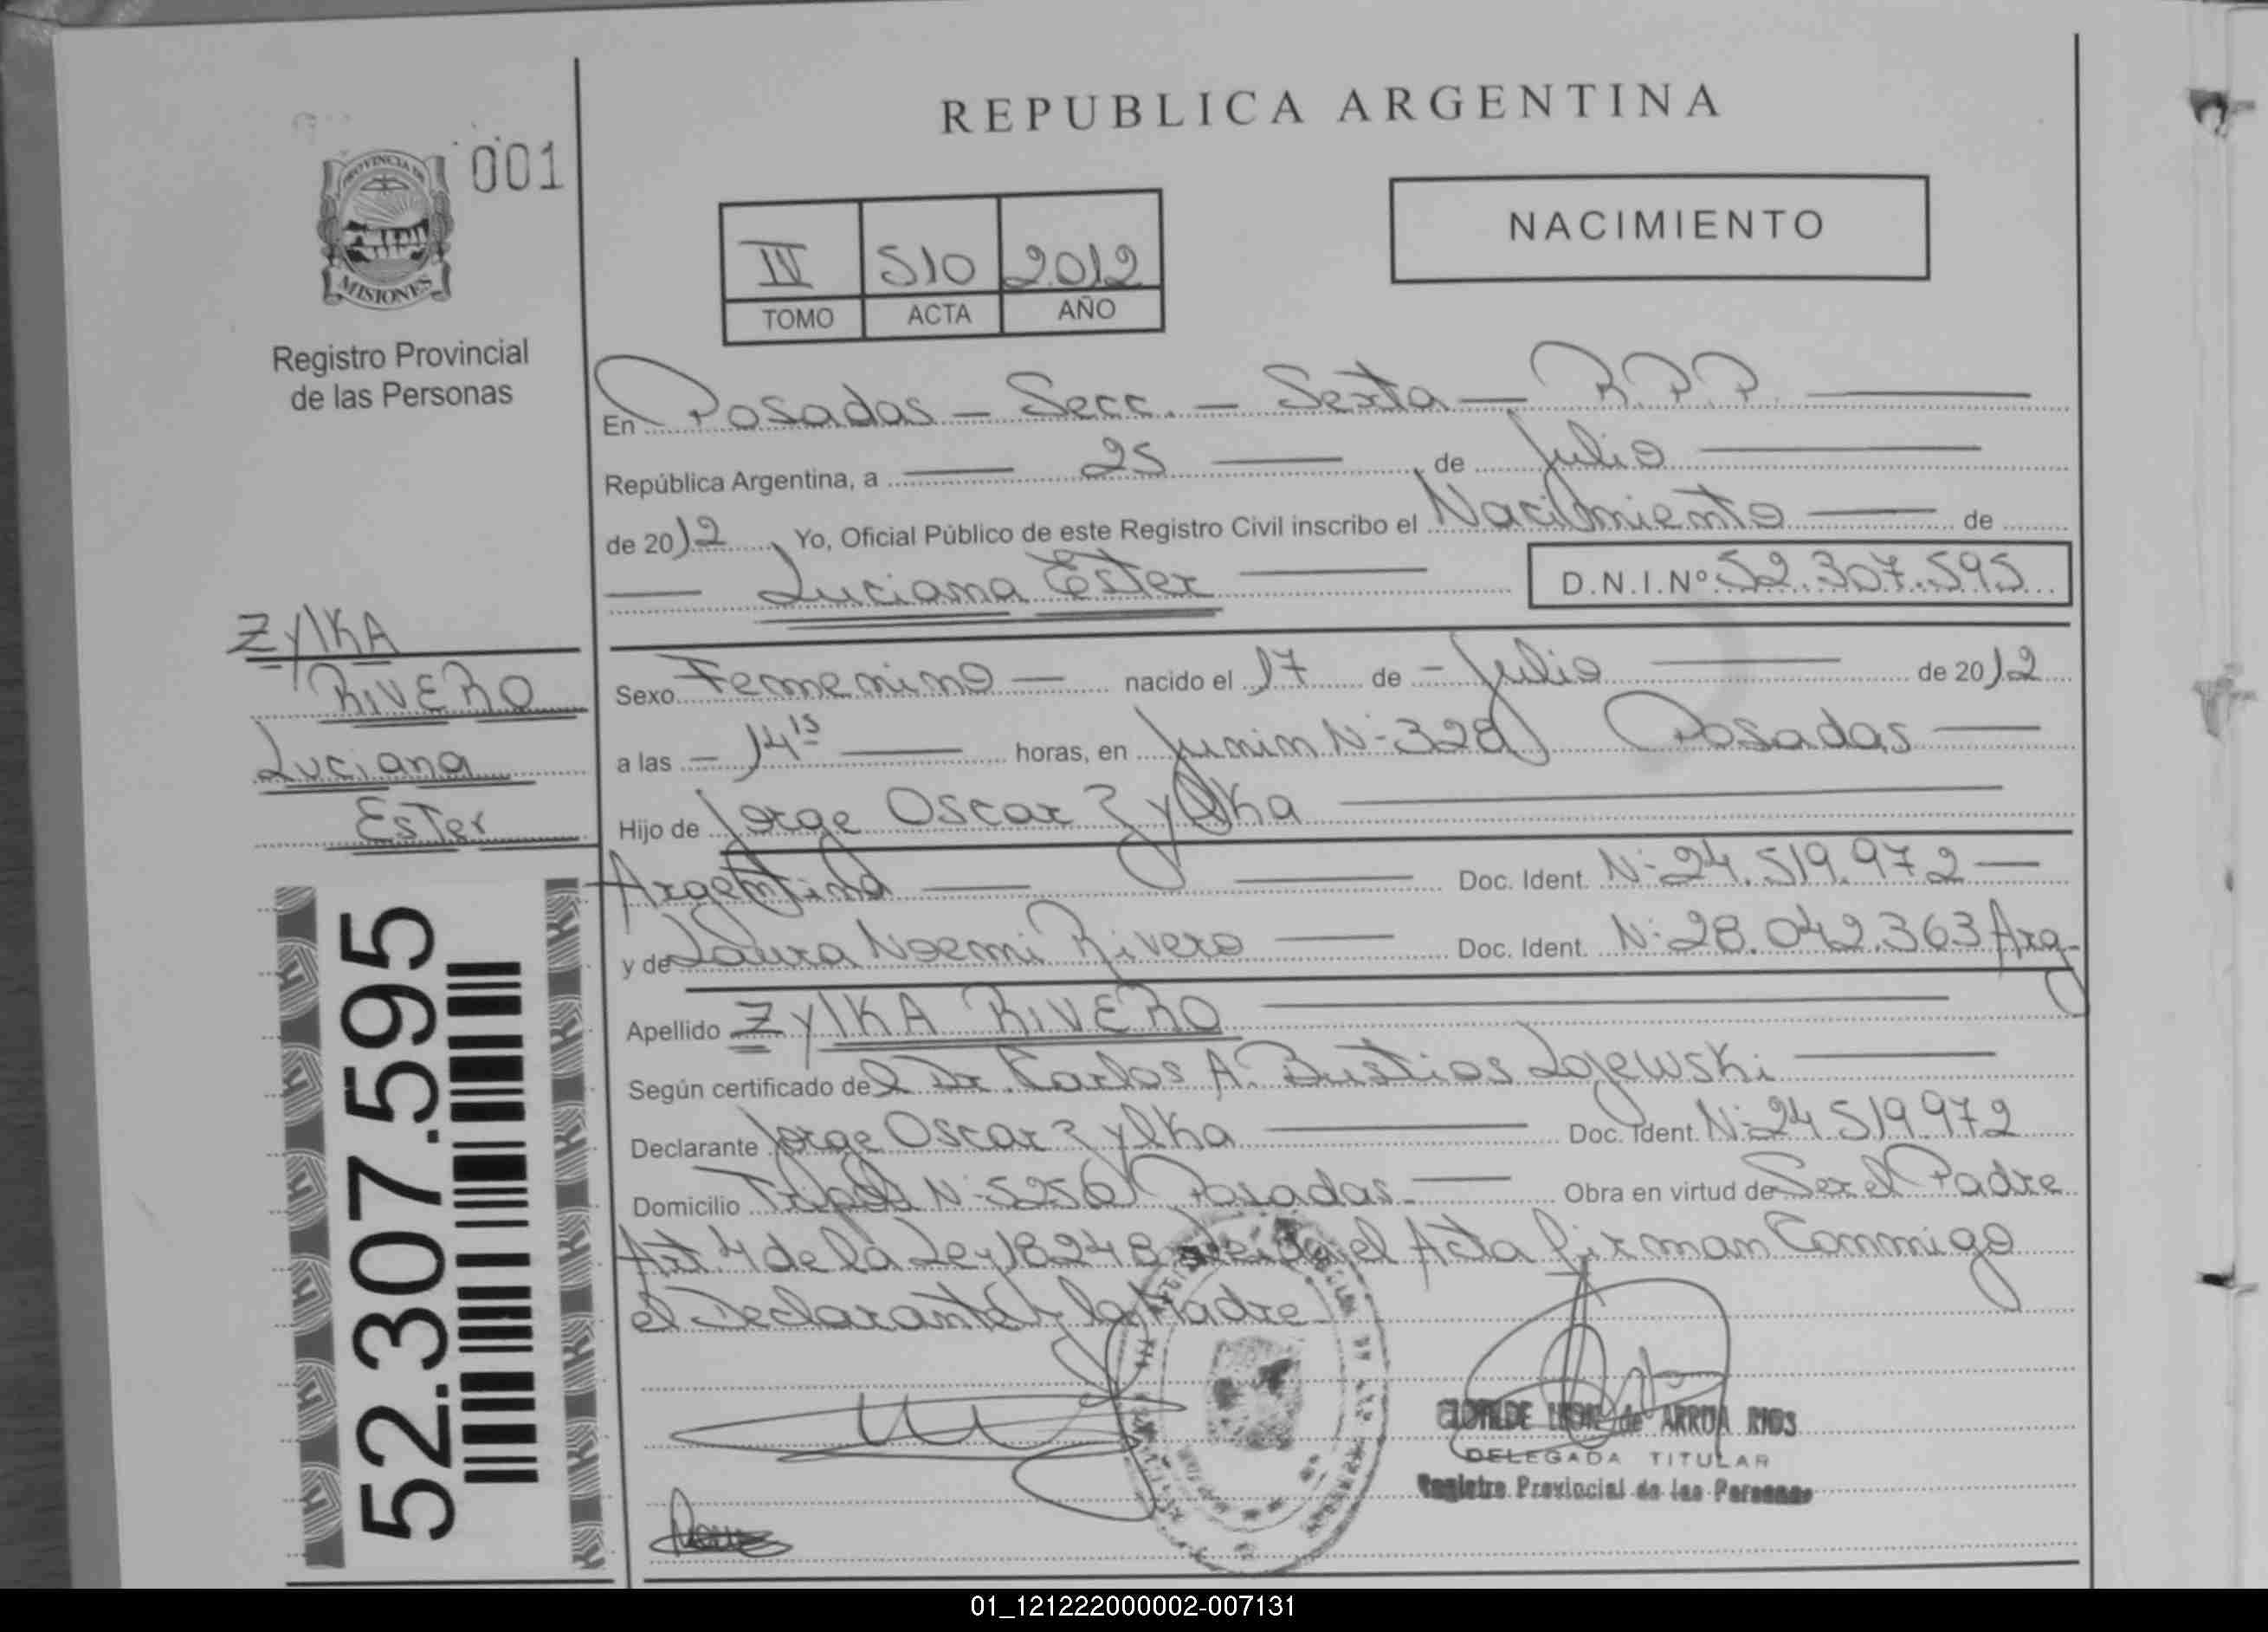 001
PROVINCIA DE
MISIONES
Registro Provincial
de las Personas
ZYLKA
RIVERO
Luciana
Ester
52.307.595
REPUBLICA ARGENTINA
NACIMIENTO
IV 510 2012
TOMO ACTA AÑO
En Posadas - Secc. - Sexta - R.P.P.
República Argentina, a 25 de Julio
de 2012 Yo, Oficial Público de este Registro Civil inscribo el Nacimiento de
Luciana Ester D.N.I.Nº 52.307.595
Sexo Femenino - nacido el 17 de - Julio de 2012
a las - 14 15 horas, en Junin N- 328 Posadas
Hijo de Jorge Oscar Zylka
Argentina Doc. Ident. N- 24.519.972
y de Laura Noemi Rivero Doc. Ident. N- 28.042.363 Arg
Apellido ZYLKA RIVERO
Según certificado del Dr. Carlos A. Bustios Lojewski
Declarante Jorge Oscar Zylka Doc. Ident. N- 24.519.972
Domicilio N- 5256 Posadas - Obra en virtud de Ser el Padre
Art. 4 de la Ley 18248 Leida el Acta firman Conmigo
el Declarante y la Madre
CLOTILDE de ARRUA RIOS
DELEGADA TITULAR
Registro Provincial de las Personas
01_121222000002-007131